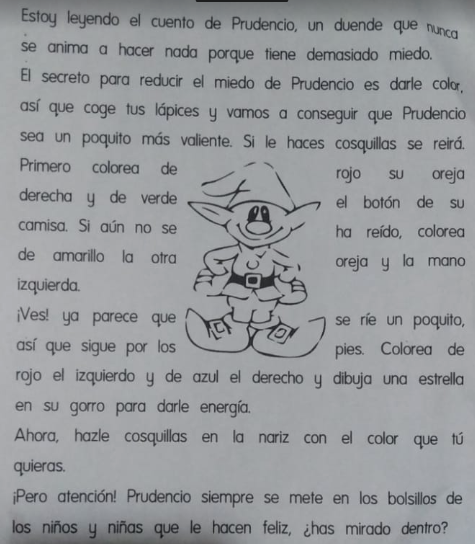 Estoy leyendo el cuento de Prudencio, un duende que nunca
se anima a hacer nada porque tiene demasiado miedo.
El secreto para reducir el miedo de Prudencio es darle color,
así que coge tus lápices y vamos a conseguir que Prudencio
sea un poquito más valiente. Si le haces cosquillas se reirá.
Primero colorea de rojo su oreja
derecha y de verde el botón de su
camisa. Si aún no se ha reído, colorea
de amarillo la otra oreja y la mano
izquierda.
¡Ves! ya parece que se ríe un poquito,
así que sigue por los pies. Colorea de
rojo el izquierdo y de azul el derecho y dibuja una estrella
en su gorro para darle energía.
Ahora, hazle cosquillas en la nariz con el color que tú
quieras.
¡Pero atención! Prudencio siempre se mete en los bolsillos de
los niños y niñas que le hacen feliz, ¿has mirado dentro?